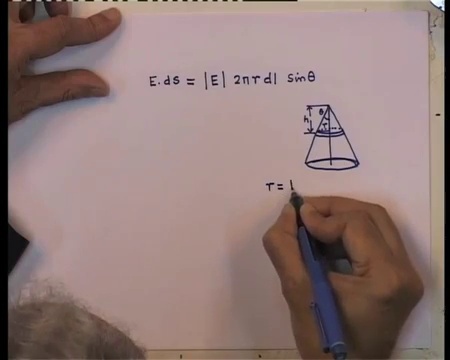 E.ds = |E| 2πr dl sinθ
h θ
r
r = l